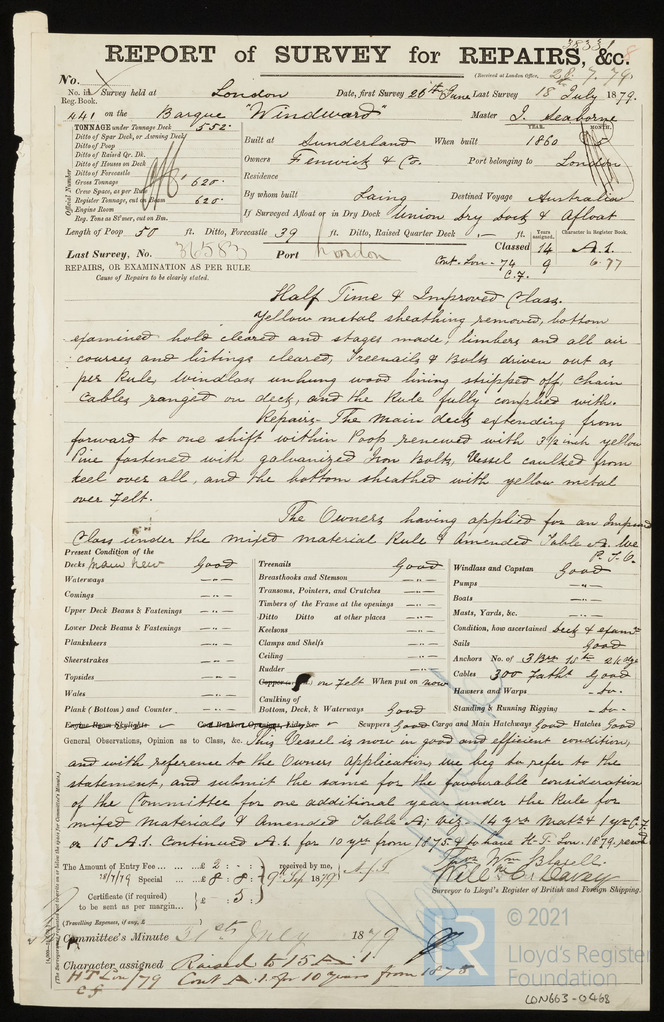 38331 8
REPORT of SURVEY for REPAIRS, &c.
No.
(Received at London Office, 26.7.79.
No. in Survey held at London Date, first Survey 26th June Last Survey 18th July 1879.
Reg. Book.
441 on the Barque "Windward" Master J. Seaborne
TONNAGE under Tonnage Deck 552.
Ditto of Spar Deck, or Awning Deck
Ditto of Poop
Ditto of Raised Qr. Dk.
Ditto of Houses on Deck
Ditto of Forecastle
Gross Tonnage 620.
Crew Space, as per Rule
Register Tonnage, cut on Beam 620.
Engine Room
Reg. Tons as St'mer, cut on Bm.
Official Number
YEAR. MONTH.
Built at Sunderland When built 1860
Owners Fenwick & Co. Port belonging to London
Residence
By whom built Laing Destined Voyage Australia
If Surveyed Afloat or in Dry Dock Union Dry Dock & Afloat
Length of Poop 50 ft. Ditto, Forecastle 39 ft. Ditto, Raised Quarter Deck - ft. Years assigned. Character in Register Book.
Last Survey, No. 36583 Port London Classed 14 A.1.
Cont. Lon - 74 9 6.77
C.F.
REPAIRS, OR EXAMINATION AS PER RULE
Cause of Repairs to be clearly stated.
Half Time & Improved Class.
Yellow metal sheathing removed, bottom
examined hold cleared and stages made, limbers and all air
courses and listings cleared, Treenails & Bolts driven out as
per Rule, Windlass unhung wood lining stripped off, Chain
Cables ranged on deck, and the Rule fully complied with.
Repairs - The main deck extending from
forward to one shift within Poop renewed with 3½ inch yellow
Pine fastened with galvanized Iron Bolts, Vessel caulked from
keel over all, and the bottom sheathed with yellow metal
over Felt.
The Owners having applied for an Improved
Class under the mixed material Rule & Amended Table A. We
P.T.O.
Present Condition of the
Decks Main New Good
Waterways —"—
Comings —"—
Upper Deck Beams & Fastenings —"—
Lower Deck Beams & Fastenings —"—
Planksheers —"—
Sheerstrakes —"—
Topsides —"—
Wales —"—
Plank (Bottom) and Counter —"—
Treenails Good
Breasthooks and Stemson —"—
Transoms, Pointers, and Crutches —"—
Timbers of the Frame at the openings —"—
Ditto Ditto at other places —"—
Keelsons —"—
Clamps and Shelfs —"—
Ceiling —"—
Rudder —"—
on Felt When put on now
Caulking of
Bottom, Deck, & Waterways Good
Windlass and Capstan Good
Pumps —"—
Boats —"—
Masts, Yards, &c. —"—
Condition, how ascertained Deck & examn
Sails Good
Anchors No. of 3 Brs 1 St
Cables 300 Faths Good
Hawsers and Warps - Do -
Standing & Running Rigging - Do -
Engine Room Skylights
Scuppers Good Cargo and Main Hatchways Good Hatches Good
General Observations, Opinion as to Class, &c. This Vessel is now in good and efficient condition,
and with reference to the Owners application, we beg to refer to the
statement, and submit the same for the favourable consideration
of the Committee for one additional year under the Rule for
mixed Materials & Amended Table A; viz. 14 yrs Matls & 1 yr C.F.
or 15 A.1. Continued A.1. for 10 yrs from 1875 & to have H.T. Lon. 1879.
The Amount of Entry Fee £ 2 : - : - received by me,
28/7/79 Special £ 8 : 8 : 9th Sep 1879
Certificate (if required) £ - 5 :
to be sent as per margin
(Travelling Expenses, if any, £ )
Wm Blaxell.
Will. C. Davey
Surveyor to Lloyd's Register of British and Foreign Shipping.
Committee's Minute 31st July 1879
Character assigned Raised to 15 A.1.
Cont A.1. for 10 years from 1875
H T Lon /79
C F
© 2021
LR
Lloyd's Register
Foundation
LON663-0468